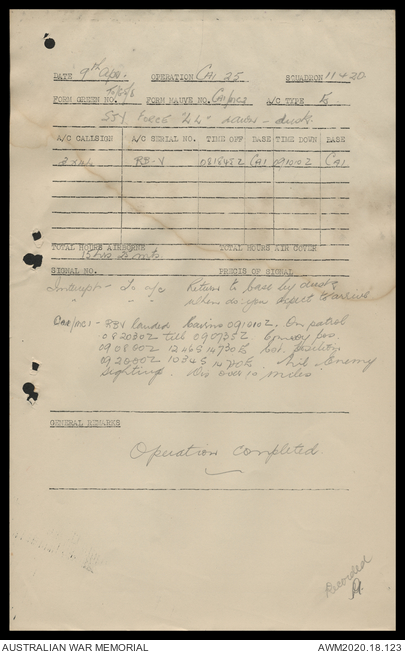 DATE 9th Apr. OPERATION CAI 25 SQUADRON 11 & 20
FORM GREEN NO. 1 FORM MAUVE NO. CAI/MO2 A/C TYPE
Force "44" dawn - dusk.
A/C CALLSIGN A/C SERIAL NO. TIME OFF BASE TIME DOWN BASE
RB-V 081845Z CAI 091010Z CAI
TOTAL HOURS AIRBORNE TOTAL HOURS AIR COVER
15 hrs 25 mts.
SIGNAL NO. PRECIS OF SIGNAL
Intercept - To a/c Return to base by dusk
" " " When do you expect to arrive
CAI/MO1 - RBV landed Cairns 091010Z. On patrol
082030Z till 090735Z Convoy pos.
090800Z 1246S 14730E Cot. position
092000Z 1034S 1470E. Nil Enemy
Sightings. Vis over 10 miles
GENERAL REMARKS
Operation completed.
Recorded
AUSTRALIAN WAR MEMORIAL AWM2020.18.123